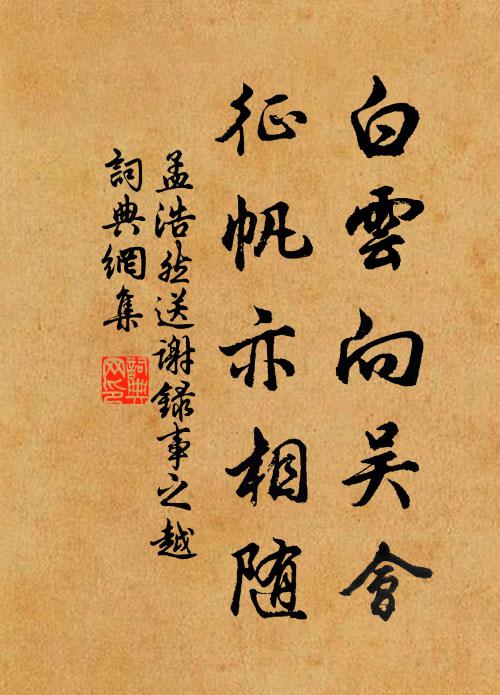 白雲向吴會
征帆亦相随
孟浩然送谢錄事之越
詞典網集
詞典
网印